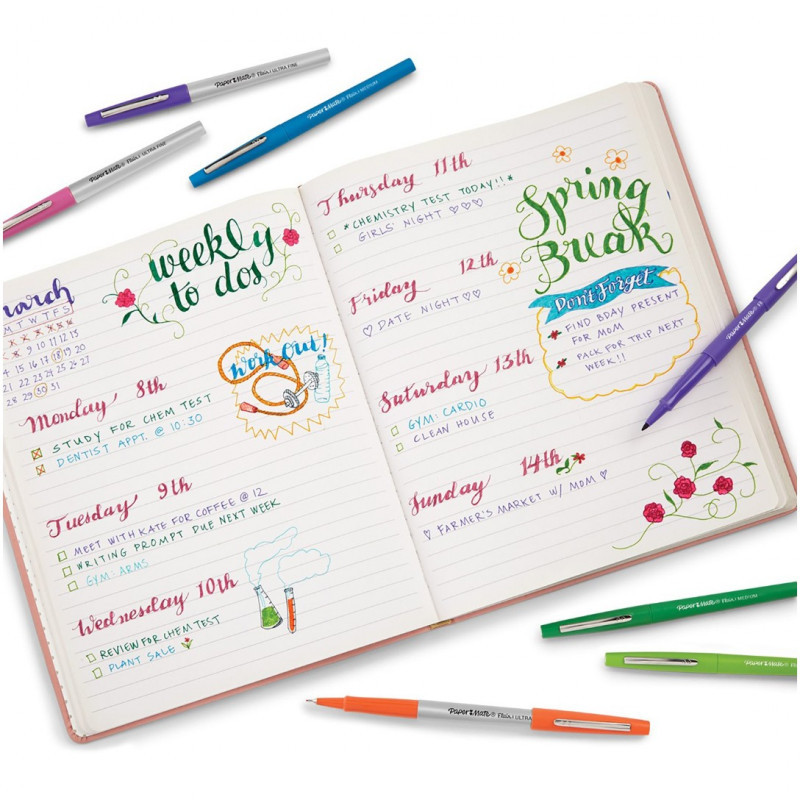 PaperMate® FLAIR ULTRA FINE
PaperMate® FLAIR ULTRA FINE
PaperMate® FLAIR MEDIUM
weekly
to dos
March
M T W T F S
9 10 11 12 13
18 19 20
24 25 26 27
30 31
Monday 8th
STUDY FOR CHEM TEST
DENTIST APPT. @ 10:30
Work Out!
Tuesday 9th
MEET WITH KATE FOR COFFEE @ 12
WRITING PROMPT DUE NEXT WEEK
GYM: ARMS
Wednesday 10th
REVIEW FOR CHEM TEST
PLANT SALE
Thursday 11th
*CHEMISTRY TEST TODAY!!*
GIRLS' NIGHT ♡♡♡
Friday 12th
♡ DATE NIGHT ♡♡
Saturday 13th
GYM: CARDIO
CLEAN HOUSE
Sunday 14th
♡ FARMER'S MARKET W/ MOM ♡
Spring
Break
Don't Forget
FIND BDAY PRESENT
FOR MOM
PACK FOR TRIP NEXT
WEEK!!
PaperMate®
PaperMate® FLAIR MEDIUM
PaperMate® FLAIR
PaperMate® FLAIR ULTRA